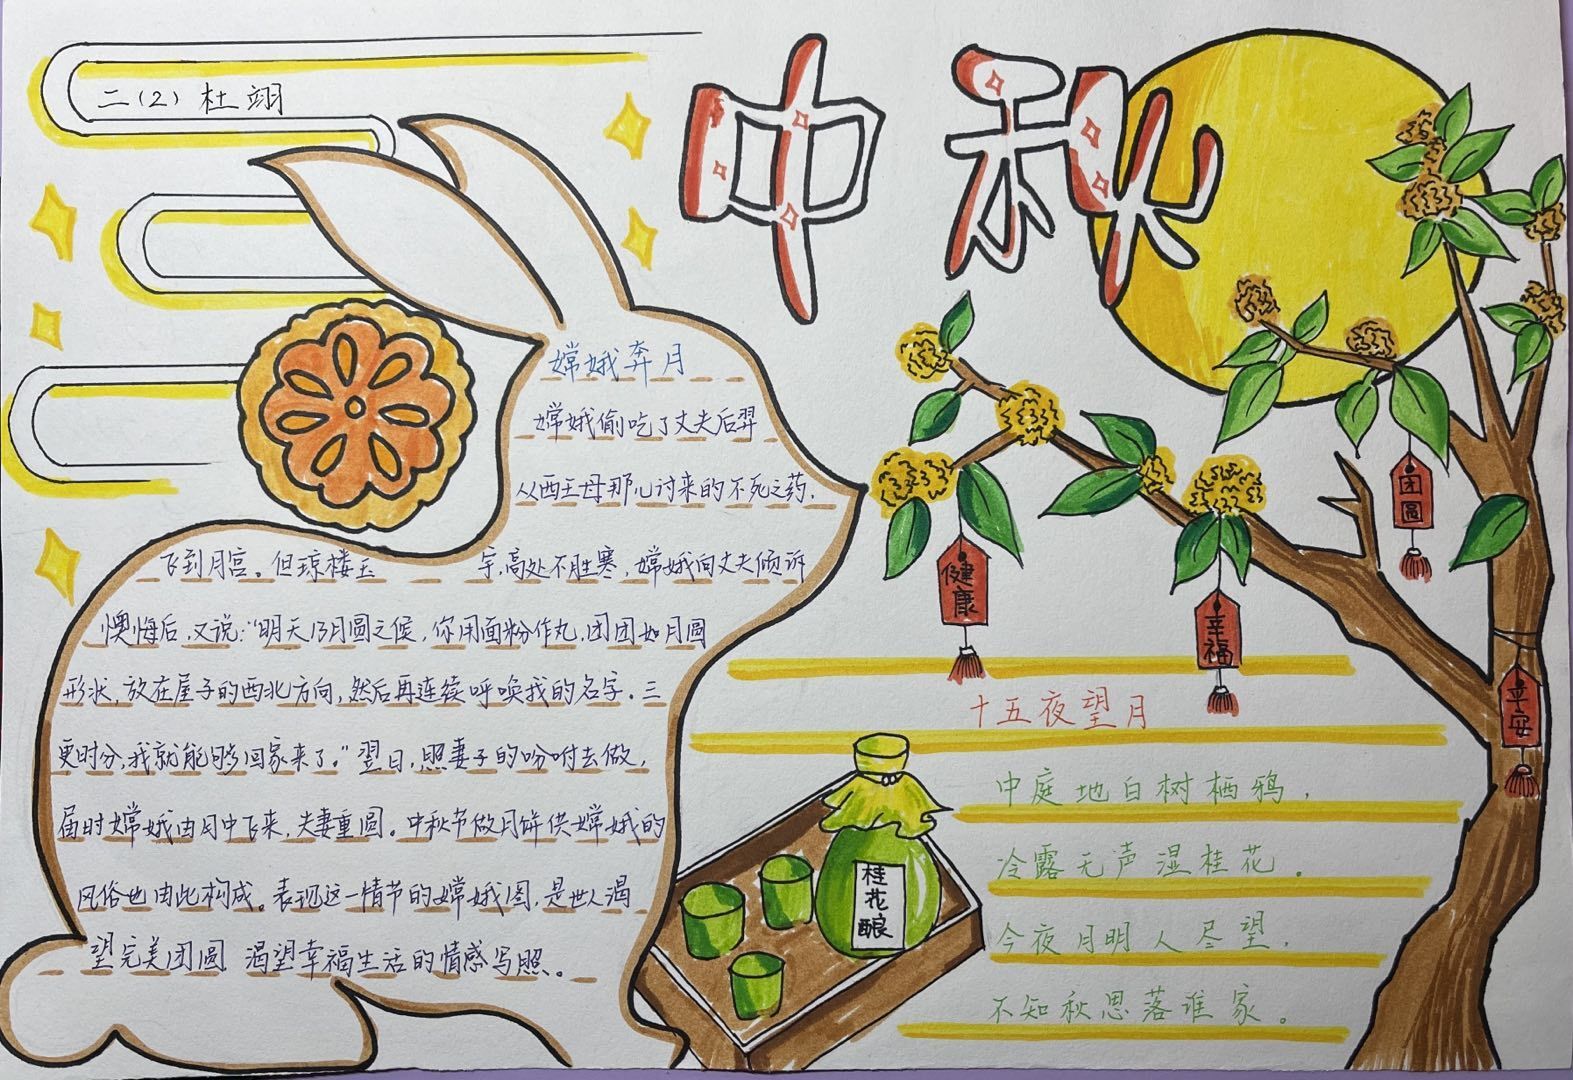 二（2） 杜翊
中秋
嫦娥奔月
嫦娥偷吃了丈夫后羿
从西王母那儿讨来的不死之药，
飞到月宫。但琼楼玉宇，高处不胜寒，嫦娥向丈夫倾诉
懊悔后，又说："明天乃月圆之候，你用面粉作丸，团团如月圆
形状，放在屋子的西北方向，然后再连续呼唤我的名字。三
更时分，我就能够回家来了。"翌日，照妻子的吩咐去做，
届时嫦娥由月中飞来，夫妻重圆。中秋节做月饼供嫦娥的
风俗也由此构成。表现这一情节的嫦娥图，是世人渴
望完美团圆 渴望幸福生活的情感写照。
团圆
健康
幸福
平安
十五夜望月
中庭地白树栖鸦，
冷露无声湿桂花。
今夜月明人尽望，
不知秋思落谁家。
桂花酿